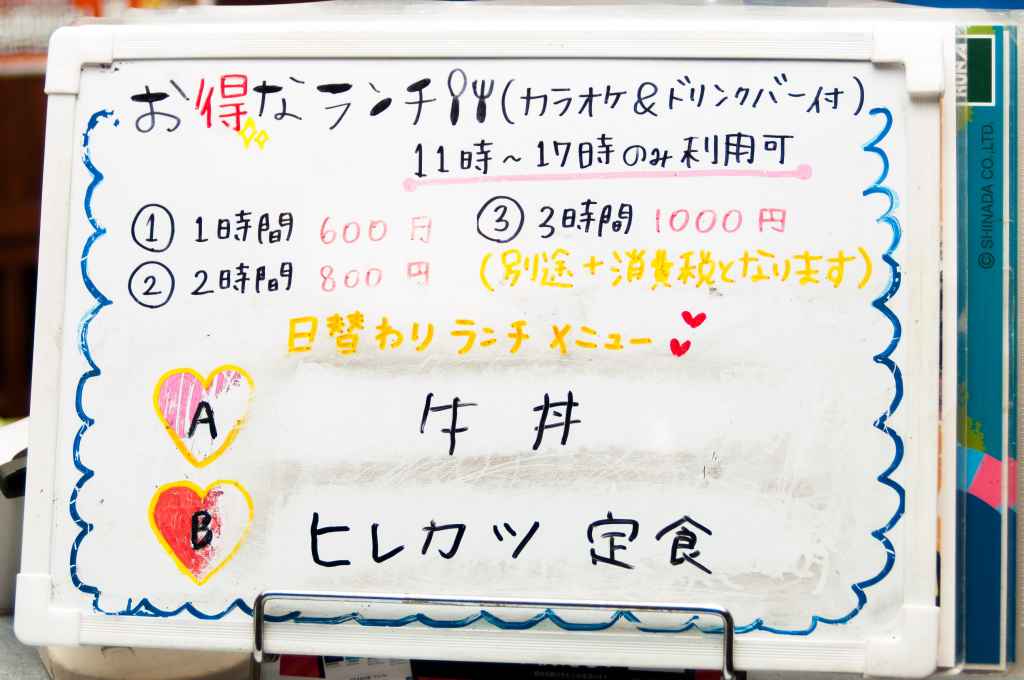 お得なランチ(カラオケ&ドリンクバー付)
11時~17時のみ利用可
① 1時間 600円
② 2時間 800円
③ 3時間 1000円
(別途+消費税となります)
日替わりランチメニュー
A 牛丼
B ヒレカツ 定食
© SHINADA CO.,LTD.